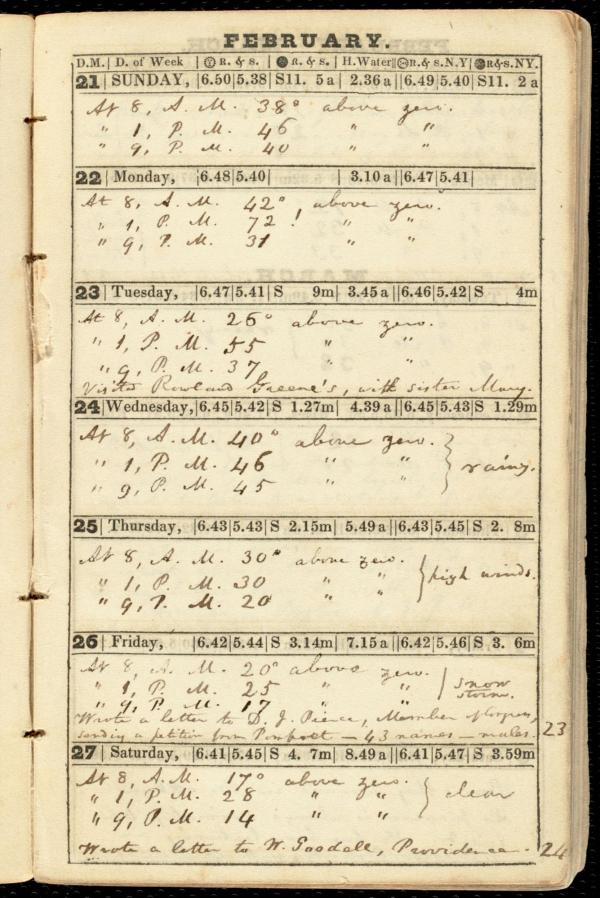 FEBRUARY.
D.M. | D. of Week | R. & s. | R. & s. | H.Water || R.& s.N.Y | R&s.NY.
21 | SUNDAY, | 6.50 | 5.38 | S11. 5 a | 2.36 a || 6.49 | 5.40 | S11. 2 a
At 8, A. M. 38° above zero.
" 1, P. M. 46 " "
" 9, P. M. 40 " "
22 | Monday, | 6.48 | 5.40 | | 3.10 a || 6.47 | 5.41 |
At 8, A. M. 42° above zero.
" 1, P. M. 72 ! " "
" 9, P. M. 31 " "
23 | Tuesday, | 6.47 | 5.41 | S 9m | 3.45 a || 6.46 | 5.42 | S 4m
At 8, A. M. 26° above zero.
" 1, P. M. 55 " "
" 9, P. M. 37 " "
Visited Rowland Greene's, with sister Mary.
24 | Wednesday, | 6.45 | 5.42 | S 1.27m | 4.39 a || 6.45 | 5.43 | S 1.29m
At 8, A. M. 40° above zero.
" 1, P. M. 46 " " } rainy.
" 9, P. M. 45
25 | Thursday, | 6.43 | 5.43 | S 2.15m | 5.49 a || 6.43 | 5.45 | S 2. 8m
At 8, A. M. 30° above zero.
" 1, P. M. 30 " " } high winds.
" 9, P. M. 20 " "
26 | Friday, | 6.42 | 5.44 | S 3.14m | 7.15 a || 6.42 | 5.46 | S 3. 6m
At 8, A. M. 20° above zero.
" 1, P. M. 25 " " } snow storm.
" 9, P. M. 17 " "
Wrote a letter to D. J. Pearce, Member of Congress,
sending a petition from Pomfret — 43 names — males. 23
27 | Saturday, | 6.41 | 5.45 | S 4. 7m | 8.49 a || 6.41 | 5.47 | S 3.59m
At 8, A. M. 17° above zero.
" 1, P. M. 28 " " } clear
" 9, P. M. 14 " "
Wrote a letter to W. Goodell, Providence. 24